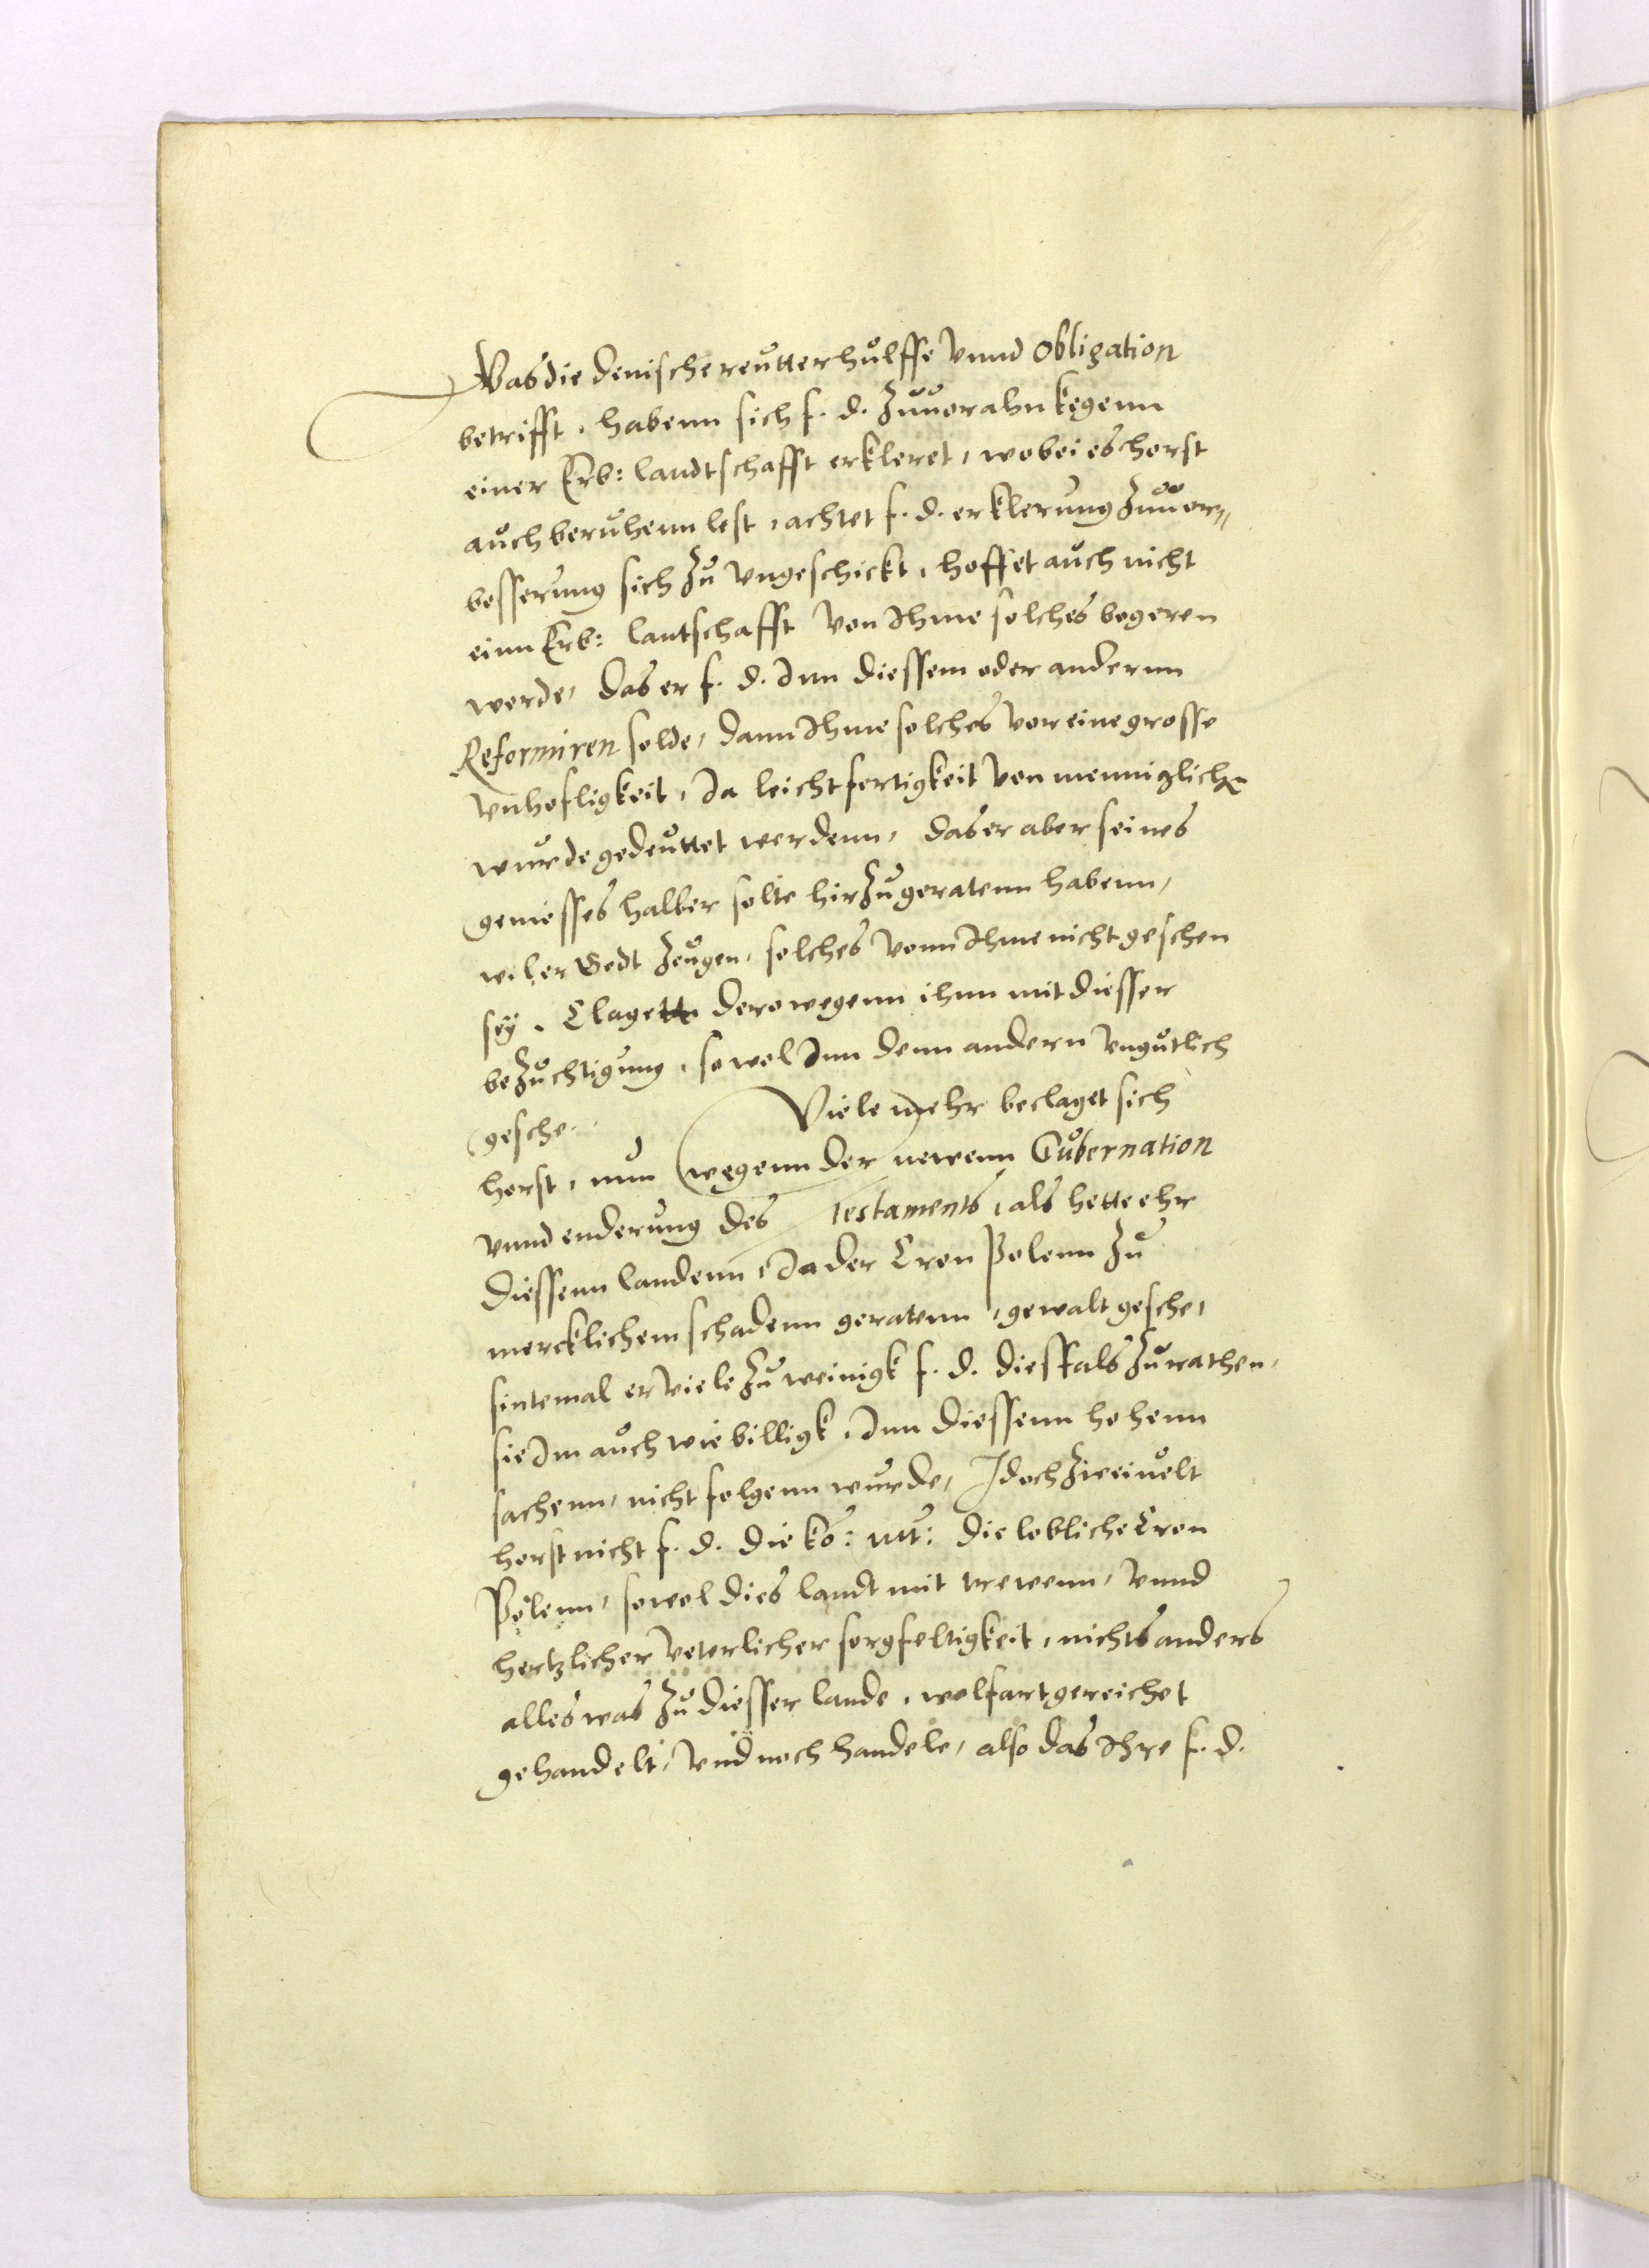 Was die denische reutter hulffe vnnd Obligation
betrifft, habenn sich f. d. zuuorahn kegenn
einer Erb: landtschafft erkleret, wobei es horst
auch beruhenn lest, achtet f. d. erklerung zuuor,,
besserung sich zu vngeschickt, hoffet auch nicht
einn Erb: lantschafft von Ihme solches begeren
werde, das er f. d. Inn diessem oder anderm
Reformiren solde, dann Ihme solches vor eine grosse
vnhofligkeit, Ja leichtfertigkeit von menniglich
wurde gedeuttet werdenn, das er aber seines
geniesses halber solte hirzu geratenn habenn,
wil er Godt zeugen, solches vonn Ihme nicht geschen
sey. Clagett derowegenn ihm mit diesser
bezuchtigung, sowol Inn denn andern vngutlich
gesche.. Viele mehr beclaget sich
horst, nun wegenn der newenn Gubernation
vnnd enderung des Testaments, als hette ehr
diessenn landenn, Ja der Cron Polenn zu
mercklichem schadenn geratenn, gewalt gesche,
sintemal er viele zu weinigk f. d. diesfals zu rathen,
sie Im auch wie billigk, Inn diessenn hohenn
sachenn, nicht folgenn wurde, Idoch zweiuelt
horst nicht f. d. die ko: mt: die lobliche Cron
Polenn, sowol dies landt mit trewenn, vnnd
hertzlicher veterlicher sorgfeltigkeit, nichts anders
alles was zu diesser lande, wolfart gereichet
gehandelt, vnd noch handele, also das Ihre f. d.